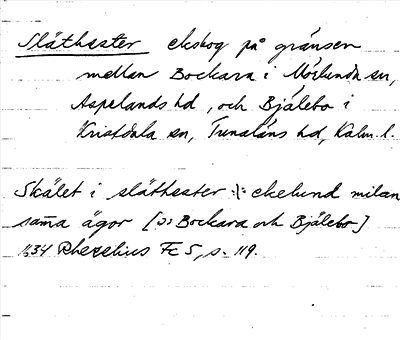 Släthester ekskog på gränsen
mellan Bockara i Mörlunda sn,
Aspelands hd, och Bjälebo i
Kristdala sn, Tunaläns hd, Kalm. l.
Skälet i släthester :/: ekelund milan
sama ägor [ɔ: Bockara och Bjälebo]
1634 Rhezelius Fc 5, s. 119.